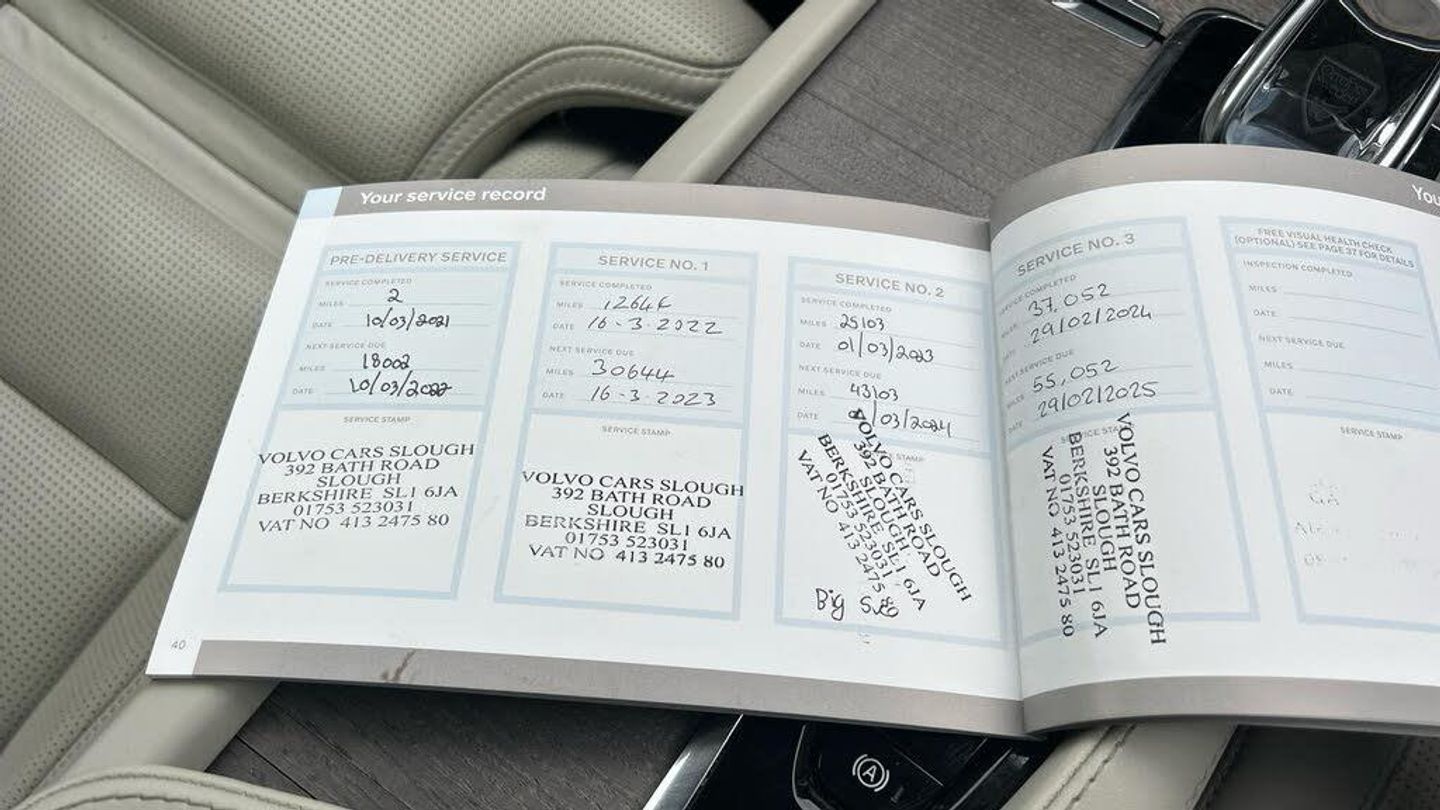 Your service record
PRE-DELIVERY SERVICE
SERVICE COMPLETED
MILES 2
DATE 10/03/2021
NEXT SERVICE DUE
MILES 18002
DATE 10/03/2022
SERVICE STAMP
VOLVO CARS SLOUGH
392 BATH ROAD
SLOUGH
BERKSHIRE SL1 6JA
01753 523031
VAT NO 413 2475 80
40
SERVICE NO. 1
SERVICE COMPLETED
MILES 12644
DATE 16-3-2022
NEXT SERVICE DUE
MILES 30644
DATE 16-3-2023
SERVICE STAMP
VOLVO CARS SLOUGH
392 BATH ROAD
SLOUGH
BERKSHIRE SL1 6JA
01753 523031
VAT NO 413 2475 80
SERVICE NO. 2
SERVICE COMPLETED
MILES 25103
DATE 01/03/2023
NEXT SERVICE DUE
MILES 43103
DATE /03/2024
STAMP
VOLVO CARS SLOUGH
392 BATH ROAD
SLOUGH
BERKSHIRE SL1 6JA
01753 523031
VAT NO 413 2475 80
Big
SERVICE NO. 3
SERVICE COMPLETED
MILES 37,052
DATE 29/02/2024
NEXT SERVICE DUE
MILES 55,052
DATE 29/02/2025
SERVICE STAMP
VOLVO CARS SLOUGH
392 BATH ROAD
SLOUGH
BERKSHIRE SL1 6JA
01753 523031
VAT NO 413 2475 80
You
FREE VISUAL HEALTH CHECK
(OPTIONAL) SEE PAGE 37 FOR DETAILS
INSPECTION COMPLETED
MILES
DATE
NEXT SERVICE DUE
MILES
DATE
SERVICE STAMP
A